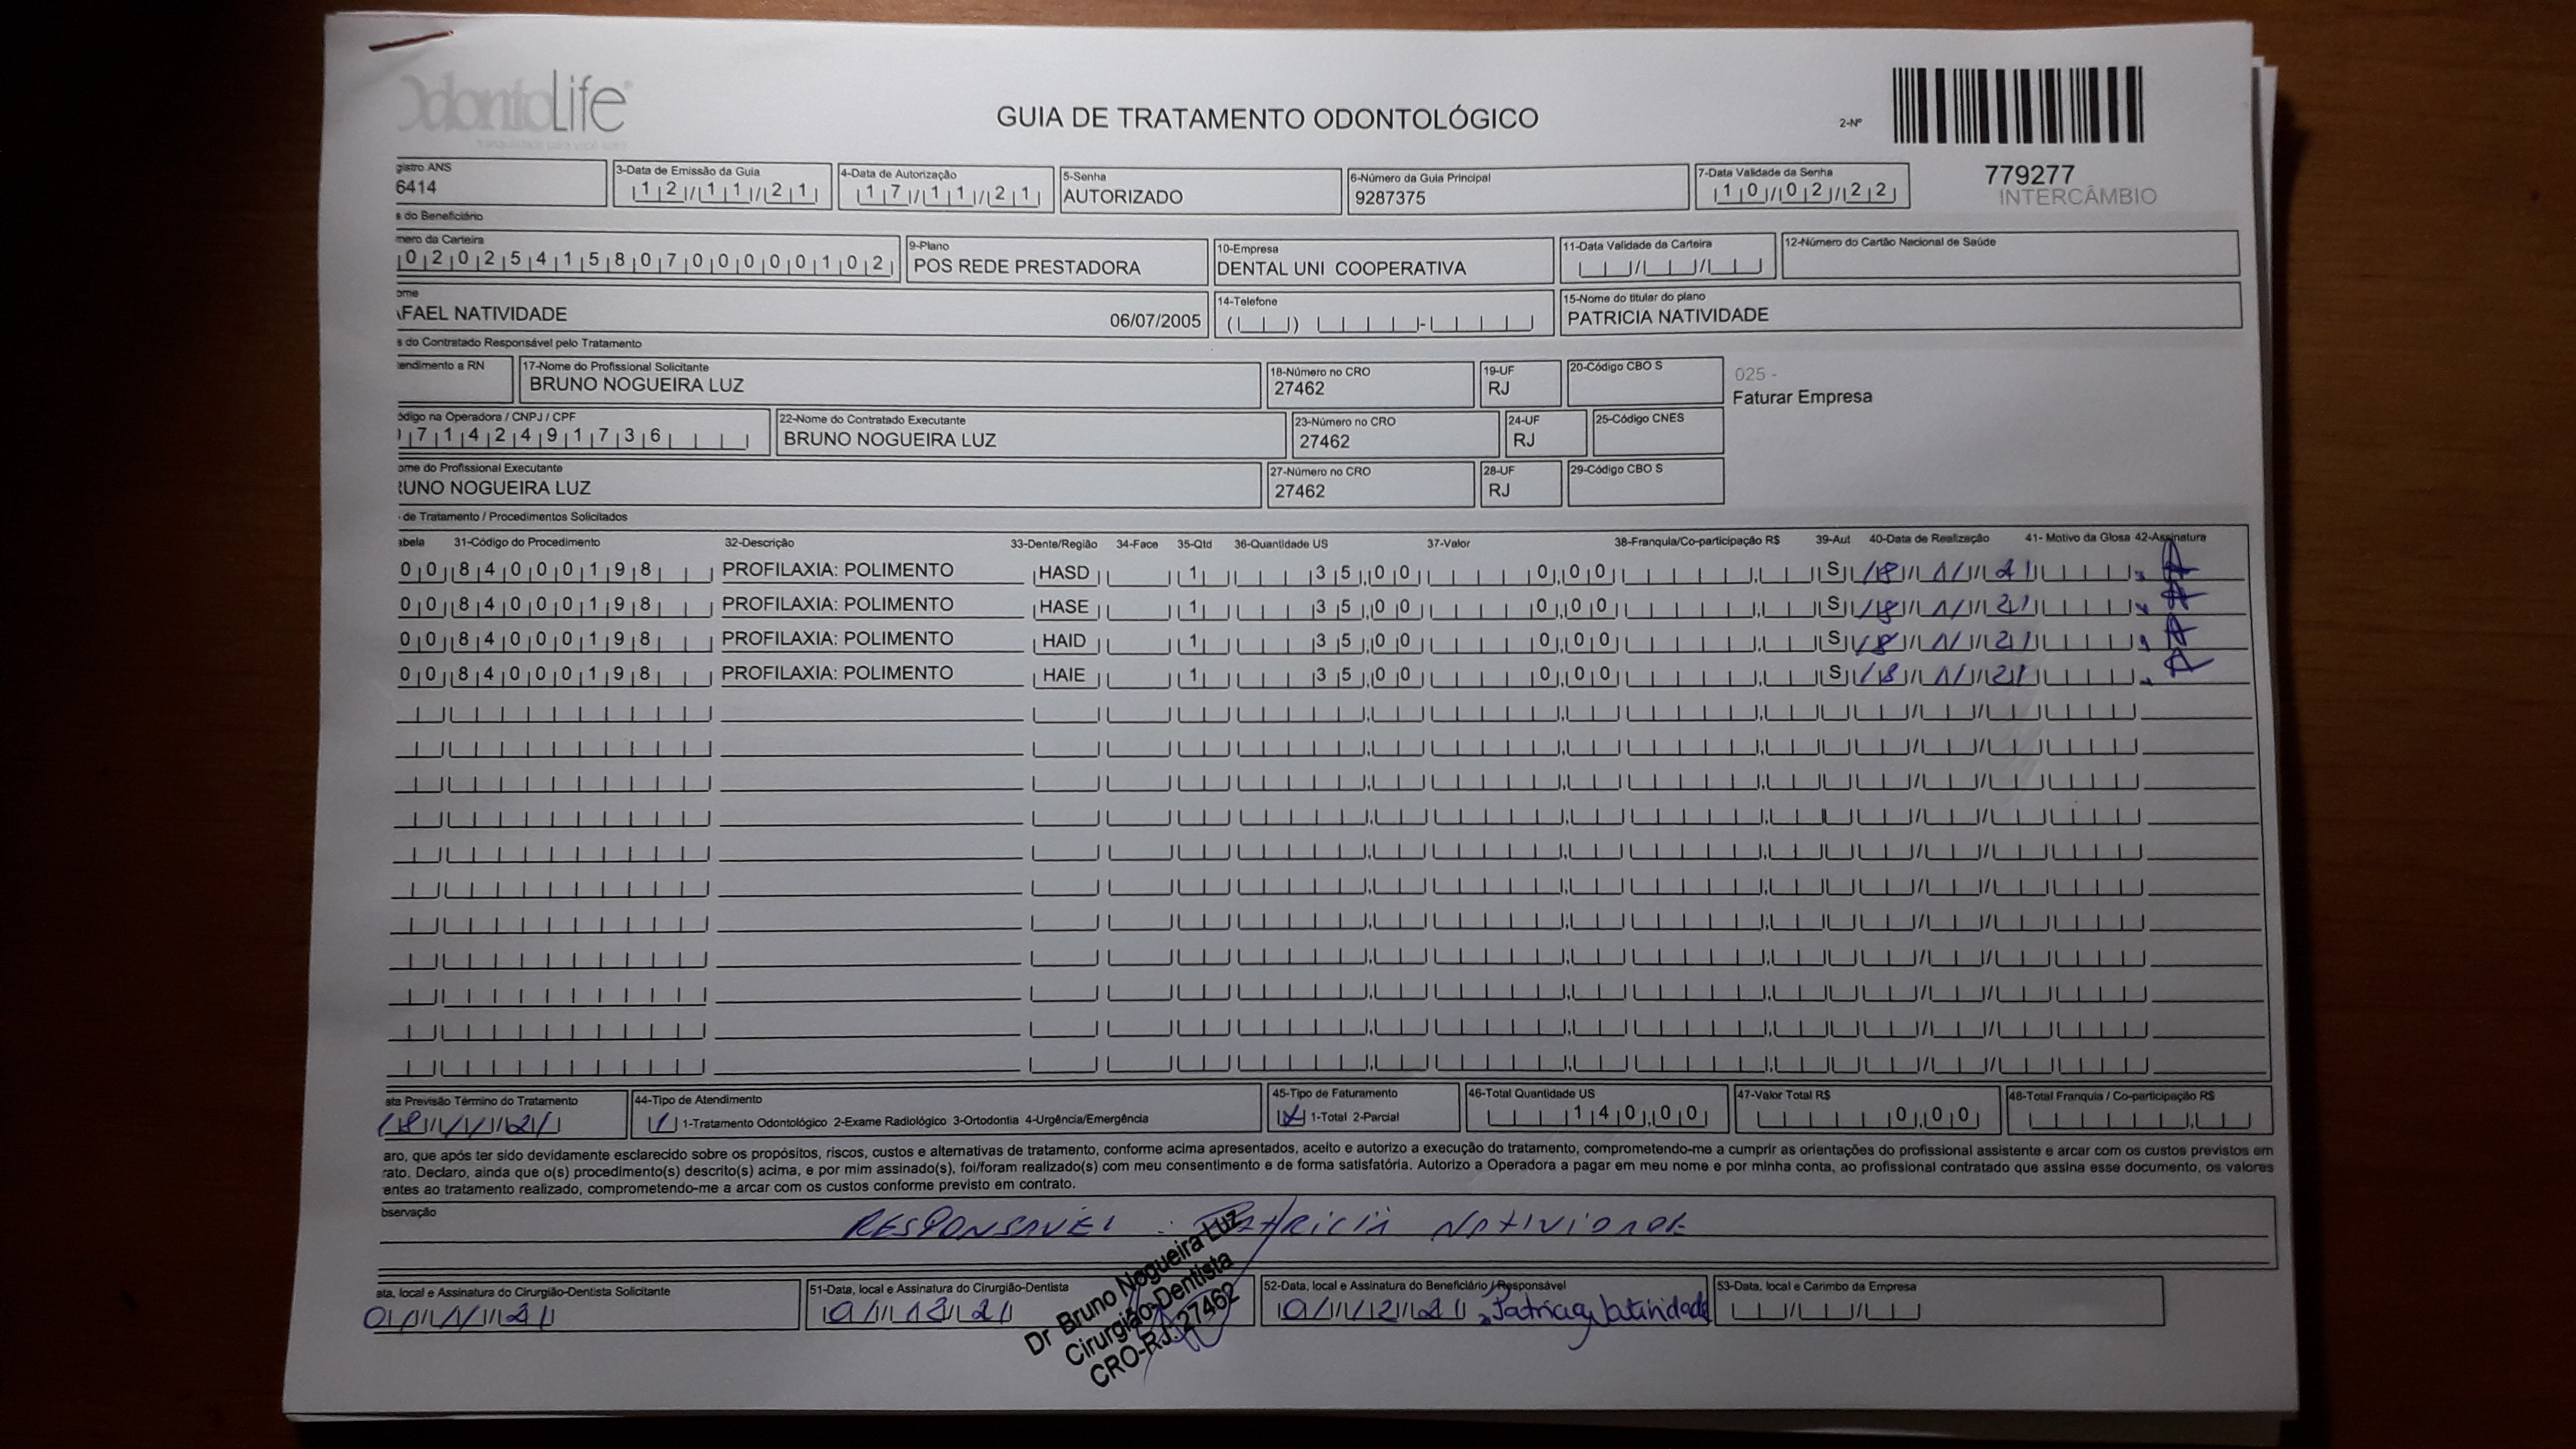 OdontoLife
GUIA DE TRATAMENTO ODONTOLÓGICO
2-Nº
779277
INTERCÂMBIO
gistro ANS
6414
3-Data de Emissão da Guia
12/11/21
4-Data de Autorização
17/11/21
5-Senha
AUTORIZADO
6-Número da Guia Principal
9287375
7-Data Validade da Senha
10/02/22
s do Beneficiário
mero da Carteira
0202541580700000102
9-Plano
POS REDE PRESTADORA
10-Empresa
DENTAL UNI COOPERATIVA
11-Data Validade da Carteira
12-Número do Cartão Nacional de Saúde
ome
AFAEL NATIVIDADE 06/07/2005
14-Telefone
15-Nome do titular do plano
PATRICIA NATIVIDADE
s do Contratado Responsável pelo Tratamento
endimento a RN
17-Nome do Profissional Solicitante
BRUNO NOGUEIRA LUZ
18-Número no CRO
27462
19-UF
RJ
20-Código CBO S
025 -
Faturar Empresa
ódigo na Operadora / CNPJ / CPF
07142491736
22-Nome do Contratado Executante
BRUNO NOGUEIRA LUZ
23-Número no CRO
27462
24-UF
RJ
25-Código CNES
ome do Profissional Executante
RUNO NOGUEIRA LUZ
27-Número no CRO
27462
28-UF
RJ
29-Código CBO S
de Tratamento / Procedimentos Solicitados
abela 31-Código do Procedimento 32-Descrição 33-Dente/Região 34-Face 35-Qtd 36-Quantidade US 37-Valor 38-Franquia/Co-participação R$ 39-Aut 40-Data de Realização 41- Motivo da Glosa 42-Assinatura
00 84000198 PROFILAXIA: POLIMENTO HASD 1 35,00 0,00 S 18/11/21
00 84000198 PROFILAXIA: POLIMENTO HASE 1 35,00 0,00 S 18/11/21
00 84000198 PROFILAXIA: POLIMENTO HAID 1 35,00 0,00 S 18/11/21
00 84000198 PROFILAXIA: POLIMENTO HAIE 1 35,00 0,00 S 18/11/21
ata Previsão Término do Tratamento
18/11/21
44-Tipo de Atendimento
1 1-Tratamento Odontológico 2-Exame Radiológico 3-Ortodontia 4-Urgência/Emergência
45-Tipo de Faturamento
1-Total 2-Parcial
46-Total Quantidade US
140,00
47-Valor Total R$
0,00
48-Total Franquia / Co-participação R$
aro, que após ter sido devidamente esclarecido sobre os propósitos, riscos, custos e alternativas de tratamento, conforme acima apresentados, aceito e autorizo a execução do tratamento, comprometendo-me a cumprir as orientações do profissional assistente e arcar com os custos previstos em
rato. Declaro, ainda que o(s) procedimento(s) descrito(s) acima, e por mim assinado(s), foi/foram realizado(s) com meu consentimento e de forma satisfatória. Autorizo a Operadora a pagar em meu nome e por minha conta, ao profissional contratado que assina esse documento, os valores
entes ao tratamento realizado, comprometendo-me a arcar com os custos conforme previsto em contrato.
bservação
RESPONSAVEL : PATRICIA NATIVIDADE
ata, local e Assinatura do Cirurgião-Dentista Solicitante
01/11/21
51-Data, local e Assinatura do Cirurgião-Dentista
01/12/21
Dr Bruno Nogueira Luz
Cirurgião-Dentista
CRO-RJ: 27462
52-Data, local e Assinatura do Beneficiário / Responsável
01/12/21 Patricia Natividade
53-Data, local e Carimbo da Empresa